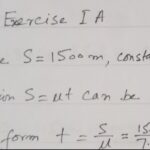 Exercise I A
S = 1500 m, const
ion S = ut can be
form t = S/u = 15